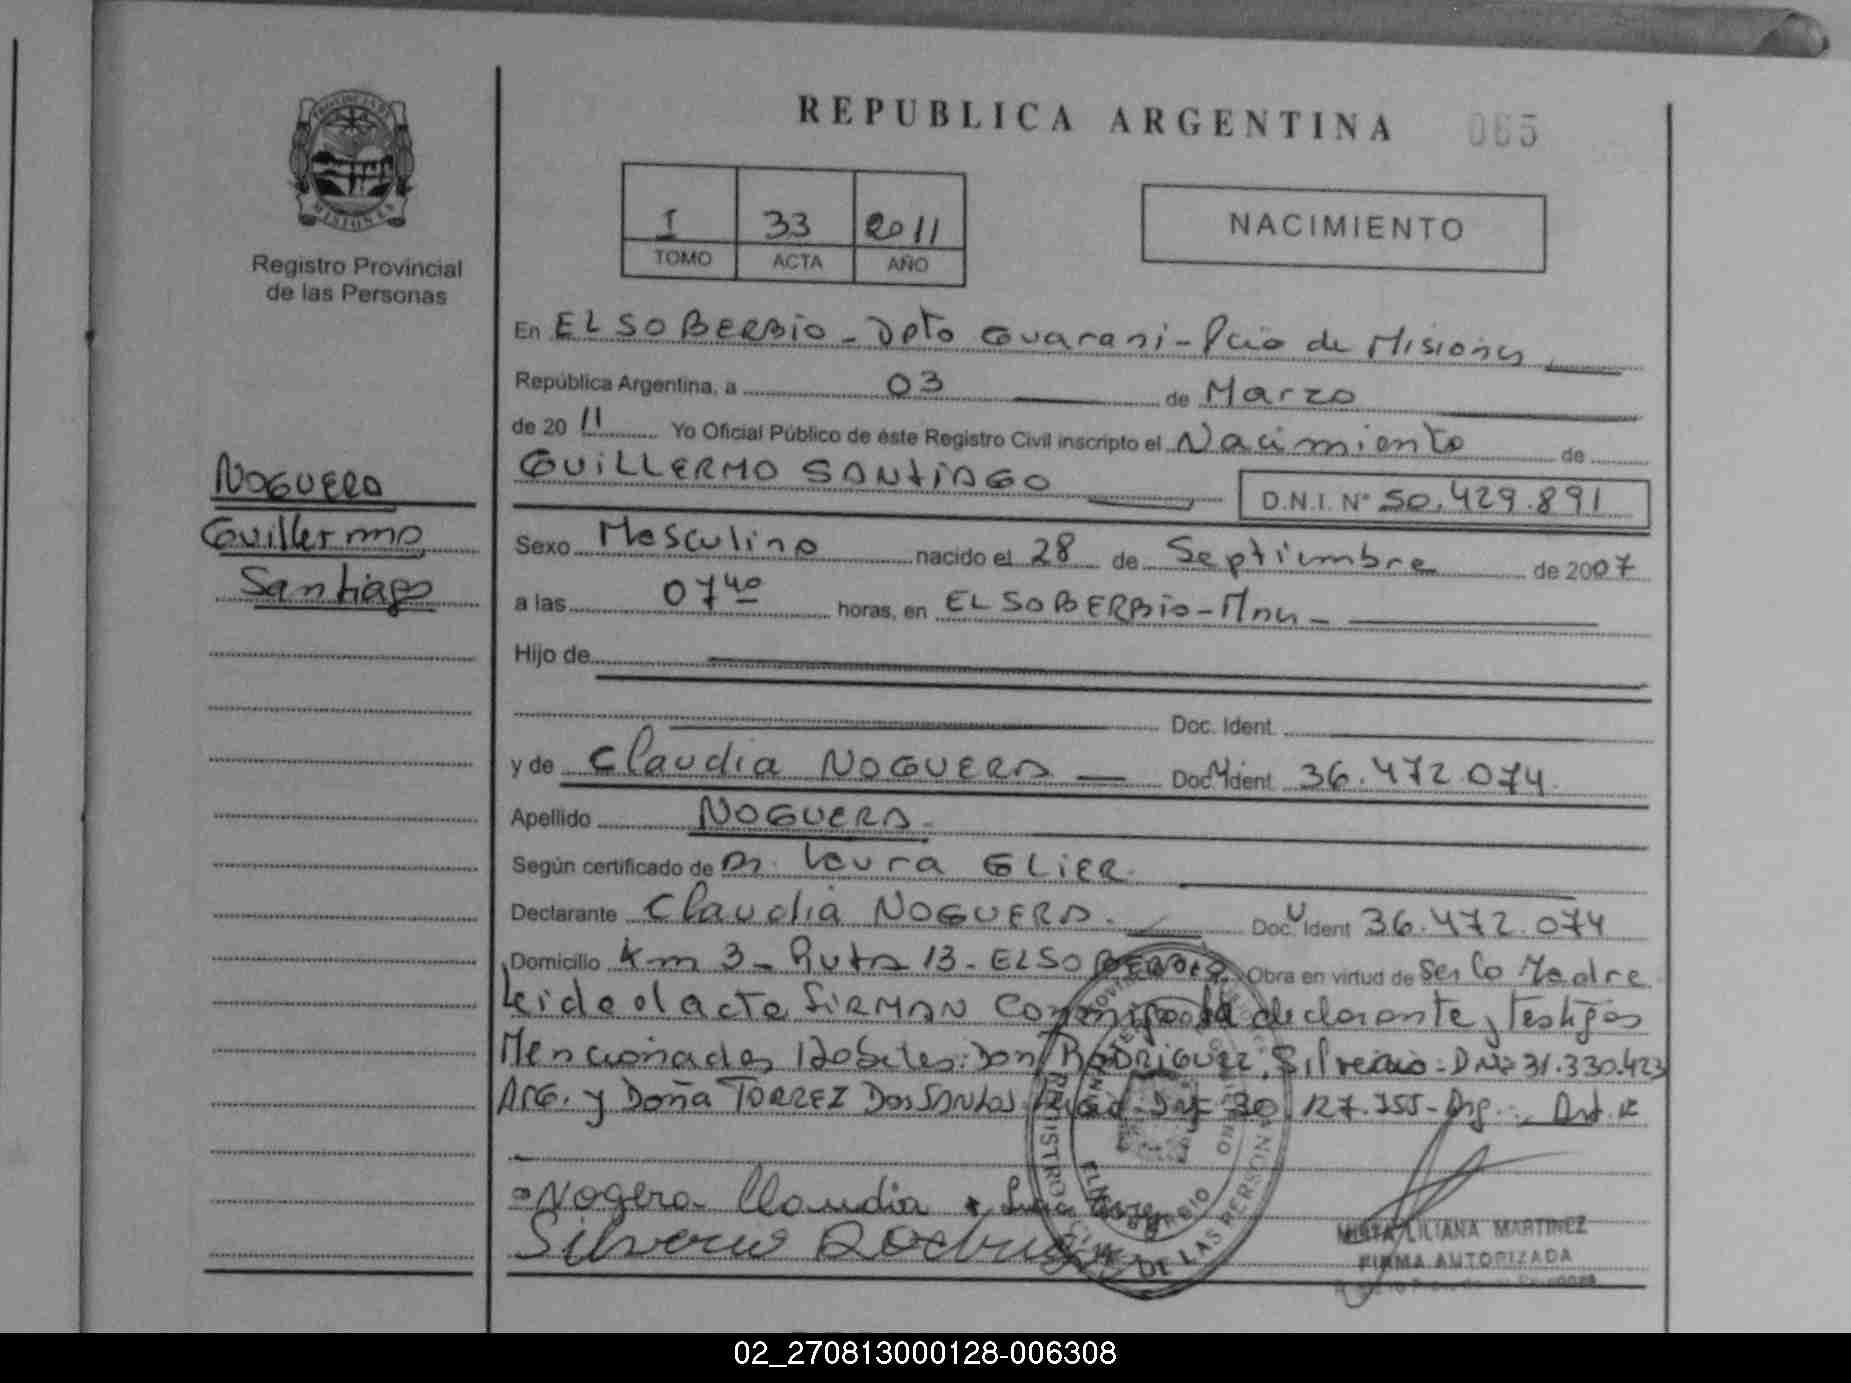 REPUBLICA ARGENTINA 065
PROVINCIA DE
MISIONES
Registro Provincial
de las Personas
I 33 2011
TOMO ACTA AÑO
NACIMIENTO
En EL SOBERBIO - Dpto Guarani - Pcia de Misiones
República Argentina, a 03 de Marzo
de 2011 Yo Oficial Público de éste Registro Civil inscripto el Nacimiento de
GUILLERMO SANTIAGO D.N.I. N° 50.429.891
NOGUERA
Guillermo
Santiago
Sexo Masculino nacido el 28 de Septiembre de 2007
a las 07 40 horas, en EL SOBERBIO - Mnes -
Hijo de
Doc. Ident.
y de Claudia NOGUERA — Doc. Ident. 36.472.074.
Apellido NOGUERA.
Según certificado de Dr. Laura GLIER.
Declarante Claudia NOGUERA. Doc. Ident 36.472.074
Domicilio Km 3 - Ruta 13 - EL SOBERBIO. Obra en virtud de Ser la Madre
Leida el acta FIRMAN Conmigo la declarante y Testigos
Mencionados Habiles: Don RODRIGUEZ, Silverio: DNI 31.330.423
ARG. y Doña TORREZ DOS SANTOS, DNI 30.127.355 - Arg.
Nogera Claudia
Silverio Rodrigue
REGISTRO DE LAS PERSONAS
MIRTA LILIANA MARTINEZ
FIRMA AUTORIZADA
02_270813000128-006308